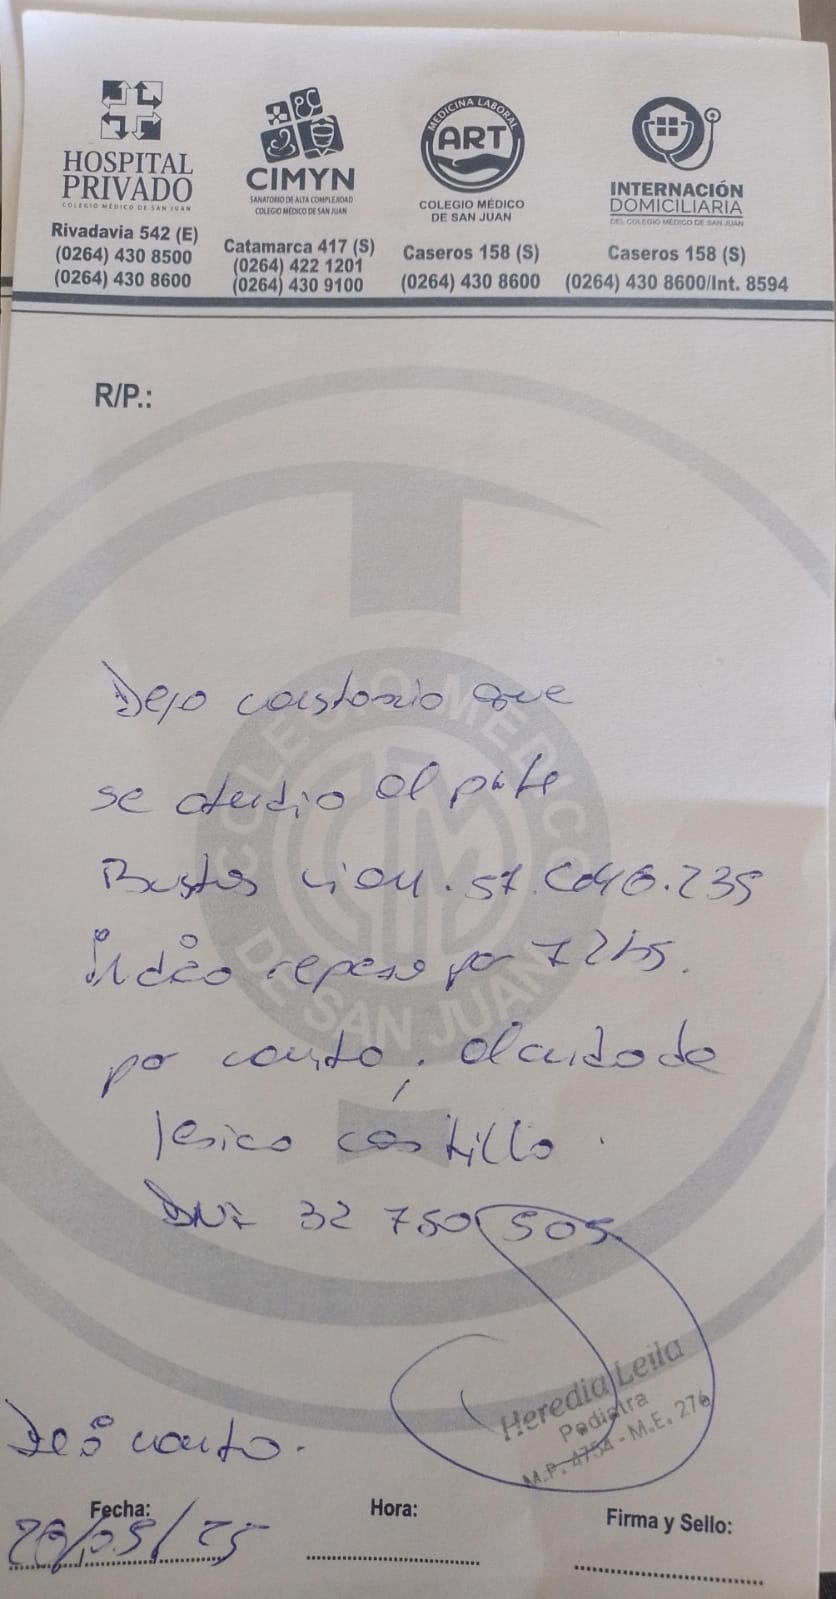 HOSPITAL
PRIVADO
COLEGIO MÉDICO DE SAN JUAN
Rivadavia 542 (E)
(0264) 430 8500
(0264) 430 8600
CIMYN
SANATORIO DE ALTA COMPLEJIDAD
COLEGIO MÉDICO DE SAN JUAN
Catamarca 417 (S)
(0264) 422 1201
(0264) 430 9100
MEDICINA LABORAL
ART
COLEGIO MÉDICO
DE SAN JUAN
Caseros 158 (S)
(0264) 430 8600
INTERNACIÓN
DOMICILIARIA
DEL COLEGIO MÉDICO DE SAN JUAN
Caseros 158 (S)
(0264) 430 8600/Int. 8594
R/P.:
COLEGIO MÉDICO
DE SAN JUAN
CM
Dejo constancia que
se atendio al pcte
Bustos 57.
reposo por 72hs.
por cuadro, al cuidado de
Jesica Castillo.
DNI 32 750 505
Heredia Leila
Pediatra
M.P. 4754 - M.E. 276
Fecha:
Hora:
Firma y Sello: